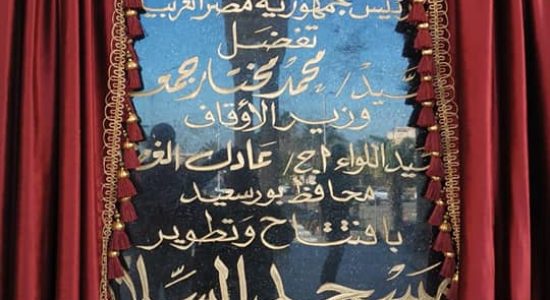 رئيس جمهورية مصر العربية
تفضل
السيد/ محمد مختار جمعة
وزير الأوقاف
السيد اللواء أ ح/ عادل الغ
محافظ بورسعيد
بافتتاح وتطوير
مسجد السلام